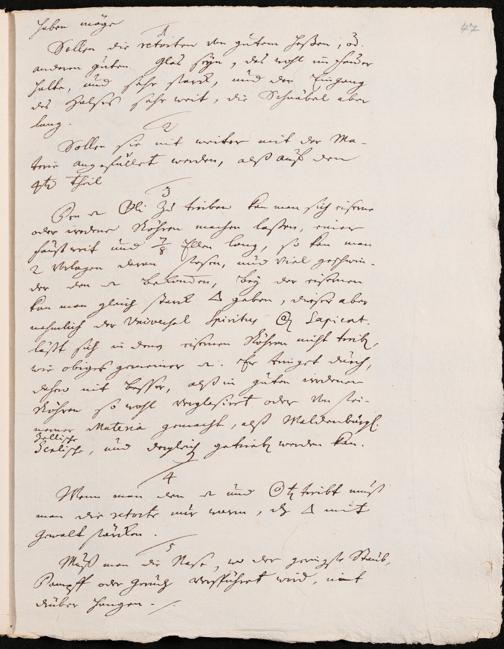 haben möge
47
1
Sollen die retorten von gutem Heßen, od.
anderen guten Glas seyn, das wohl im feuer
halte, und sehr starck, und der Eingang
des Halses sehr weit, die Schnäbel aber
lang.
2
Sollen sie nit weiter mit der Ma-
terie angefüllet werden, alß auf den
4ten theil
3
zu treiben kan man sich eiserne
oder irdene Röhren machen laßen, einer
faust weit und 7/8 Ellen lang, so kan man
2 Vorlagen daran, und viel geschwin-
der den bekommen, bey der eisernen
kan man gleich starck △ geben, dieser aber
nehmlich der Universal Spiritus Sapient.
läßt sich in denen eisernen Röhren nicht treib,
wie obiges gemeiner. Er dringet durch,
daher mit beßer, alß in guten irdenen
Röhren so wohl verglasirt oder von stei-
nerner Materia gemacht, alß Waldenburg.
und dergleich getrieb werden kan.
4
Wenn man den und treibt muß
man die retorte nur warm, △ mit
gewalt stärcken.
5
Muß man die Nase, wo der geringste Staub,
Dampff oder Geruch verspühret wird, nit
drüber hangen.